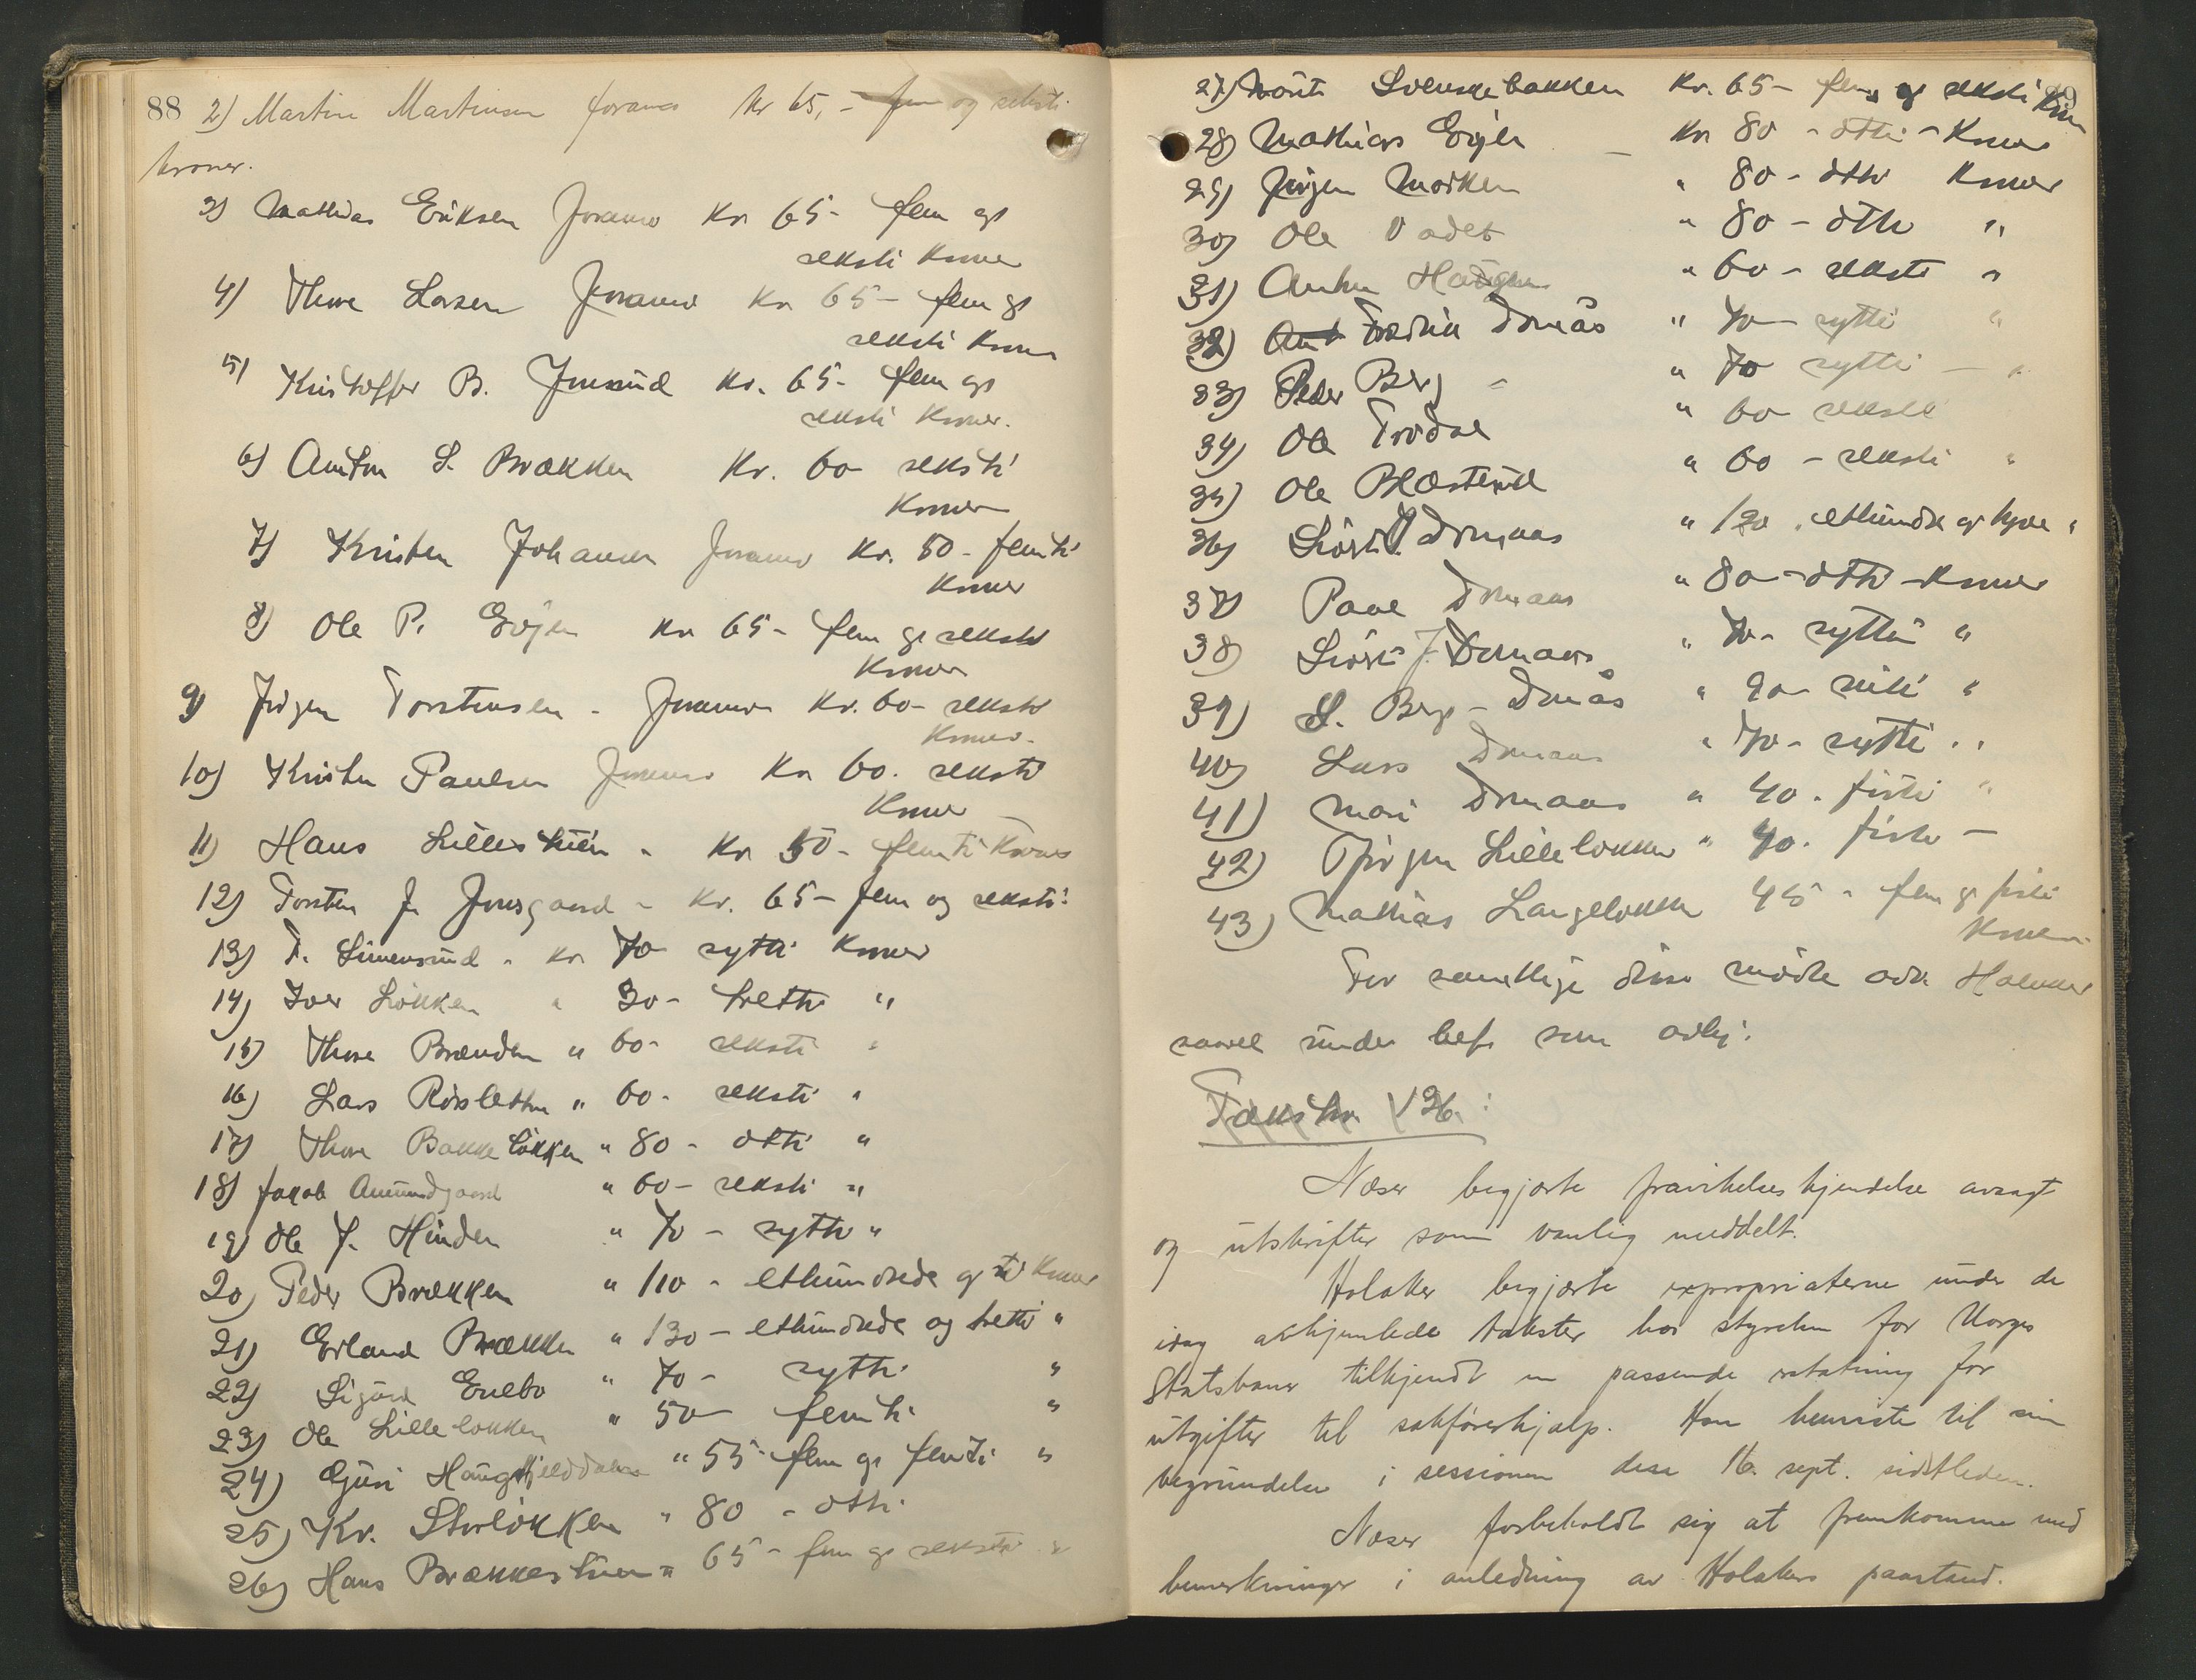 88 2) Martin Martinsen Joramo Kr 65,- fem og seksti
kroner.
3) Mathias Eriksen Joramo Kr 65- fem og
seksti Kroner
4) Thore Larsen Joramo Kr 65- fem og
seksti Kroner
5) Kristoffer B. Kr. 65- fem og
seksti Kroner.
6) Anton S. Brækken Kr. 60 seksti
Kroner
7) Kristen Johansen Joramo Kr. 50- femti
Kroner
8) Ole P. Evjen Kr 65- fem og seksti
Kroner
9) Jørgen Torstensen - Joramo Kr. 60- seksti
Kroner.
10) Kristen Paulsen Joramo Kr 60. seksti
Kroner
11) Hans Lillestuen - Kr 50- femti Kroner
12) Torsten J. Jonsgaard - Kr. 65- fem og seksti
13) T. Simensrud - Kr 70 sytti Kroner
14) Iver Løkken " 30- tretti "
15) Thore Brænden " 60- seksti "
16) Lars Røisletten " 60- seksti "
17) Thore Bakkeløkken " 80- otti "
18) Jakob Amundgaard " 60- seksti "
19) Ole J. Hinden " 70- sytti "
20) Peder Brækken " 110- ethundrede og ti Kroner
21) Erland Brækken " 130- ethundrede og tretti "
22) Sigurd Enebo " 70- sytti "
23) Ole Lilleløkken " 50- femti "
24) Guri " 55- fem og femti "
25) Kr. Storløkken " 80- otti
26) Hans Brækkestuen " 65- fem og seksti "
27) Marit Svenskebakken Kr. 65- fem og seksti Kr
28) Mathias Evjen - Kr 80- otti - Kroner
29) Jørgen Morken " 80- otti Kroner
30) Ole Vadet " 80- otti "
31) Anton Haugen " 60- seksti "
32) Fredrik Domås " 70 sytti "
33) Peder Berg - " 70 sytti - "
34) Ole Trødal " 60 seksti
35) Ole Blæsterud " 60- seksti "
36) Sivert Domaas " 120, ethundre og tyve "
37) Paul Domaas " 80- otti - Kroner
38) Sivert J. Domaas " 70- sytti "
39) S. Berg - Domås " 90- nitti "
40) Lars Domaas " 70- sytti "
41) Mari Domaas " 40. førti "
42) Jørgen Lilleløkken " 40. førti -
43) Mathias Langeløkken 45- fem og førti
Kroner.
For samtlige disse møtte adv. Holaker
saavel under bef. som avhj.
Takstnr. 136:
Næser begjærte fravikelseskjendelse avsagt
og utskrifter som vanlig meddelt.
Holaker begjærte expropriaterne under de
idag avhjemlede takster hos styrelsen for Norges
Statsbaner tilkjendt en passende erstatning for
utgifter til sakførerhjælp. Han henviste til sin
begrundelse i sessionen dese 16. sept. sidstleden.
Næser forbeholdt sig at fremkomme med
bemerkninger i anledning av Holakers paastand.